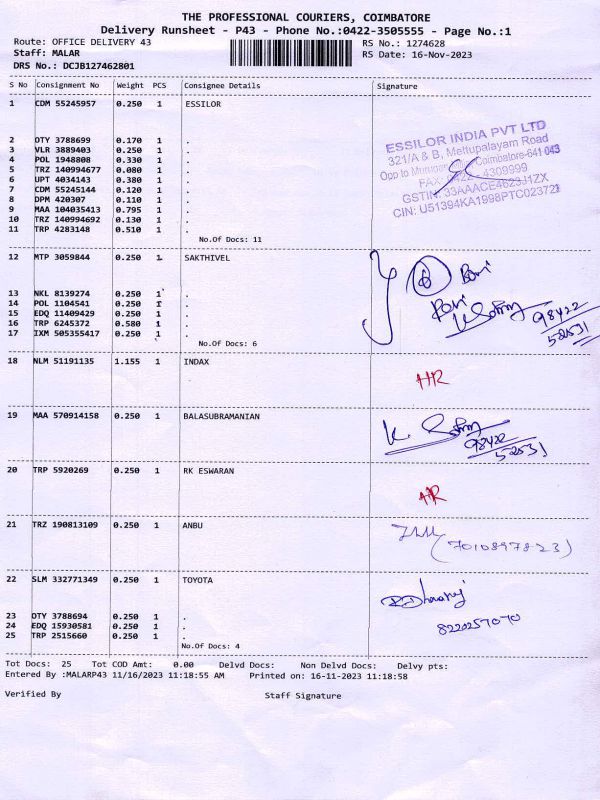 THE PROFESSIONAL COURIERS, COIMBATORE
Delivery Runsheet - P43 - Phone No.:0422-3505555 - Page No.:1
Route: OFFICE DELIVERY 43 RS No.: 1274628
Staff: MALAR RS Date: 16-Nov-2023
DRS No.: DCJB127462801
S No Consignment No Weight PCS Consignee Details Signature
1 CDM 55245957 0.250 1 ESSILOR
ESSILOR INDIA PVT LTD
321/A & B, Mettupalayam Road
Opp to Coimbatore-641 043
4309999
GSTIN: 33AAACE4623J1ZX
CIN: U51394KA1998PTC02372
2 OTY 3788699 0.170 1 .
3 VLR 3889403 0.250 1 .
4 POL 1948808 0.330 1 .
5 TRZ 140994677 0.080 1 .
6 UPT 4034143 0.380 1 .
7 CDM 55245144 0.120 1 .
8 DPM 420307 0.110 1 .
9 MAA 104035413 0.795 1 .
10 TRZ 140994692 0.130 1 .
11 TRP 4283148 0.510 1 .
No.Of Docs: 11
12 MTP 3059844 0.250 1 SAKTHIVEL
13 NKL 8139274 0.250 1 .
14 POL 1104541 0.250 1 .
15 EDQ 11409429 0.250 1 .
16 TRP 6245372 0.580 1 .
17 IXM 505355417 0.250 1 .
98422
52531
No.Of Docs: 6
18 NLM 51191135 1.155 1 INDAX
HR
19 MAA 570914158 0.250 1 BALASUBRAMANIAN
98422
52531
20 TRP 5920269 0.250 1 RK ESWARAN
HR
21 TRZ 190813109 0.250 1 ANBU
(7010897823)
22 SLM 332771349 0.250 1 TOYOTA
23 OTY 3788694 0.250 1 .
24 EDQ 15930581 0.250 1 .
8220257070
25 TRP 2515660 0.250 1 .
No.Of Docs: 4
Tot Docs: 25 Tot COD Amt: 0.00 Delvd Docs: Non Delvd Docs: Delvy pts:
Entered By :MALARP43 11/16/2023 11:18:55 AM Printed on: 16-11-2023 11:18:58
Verified By Staff Signature